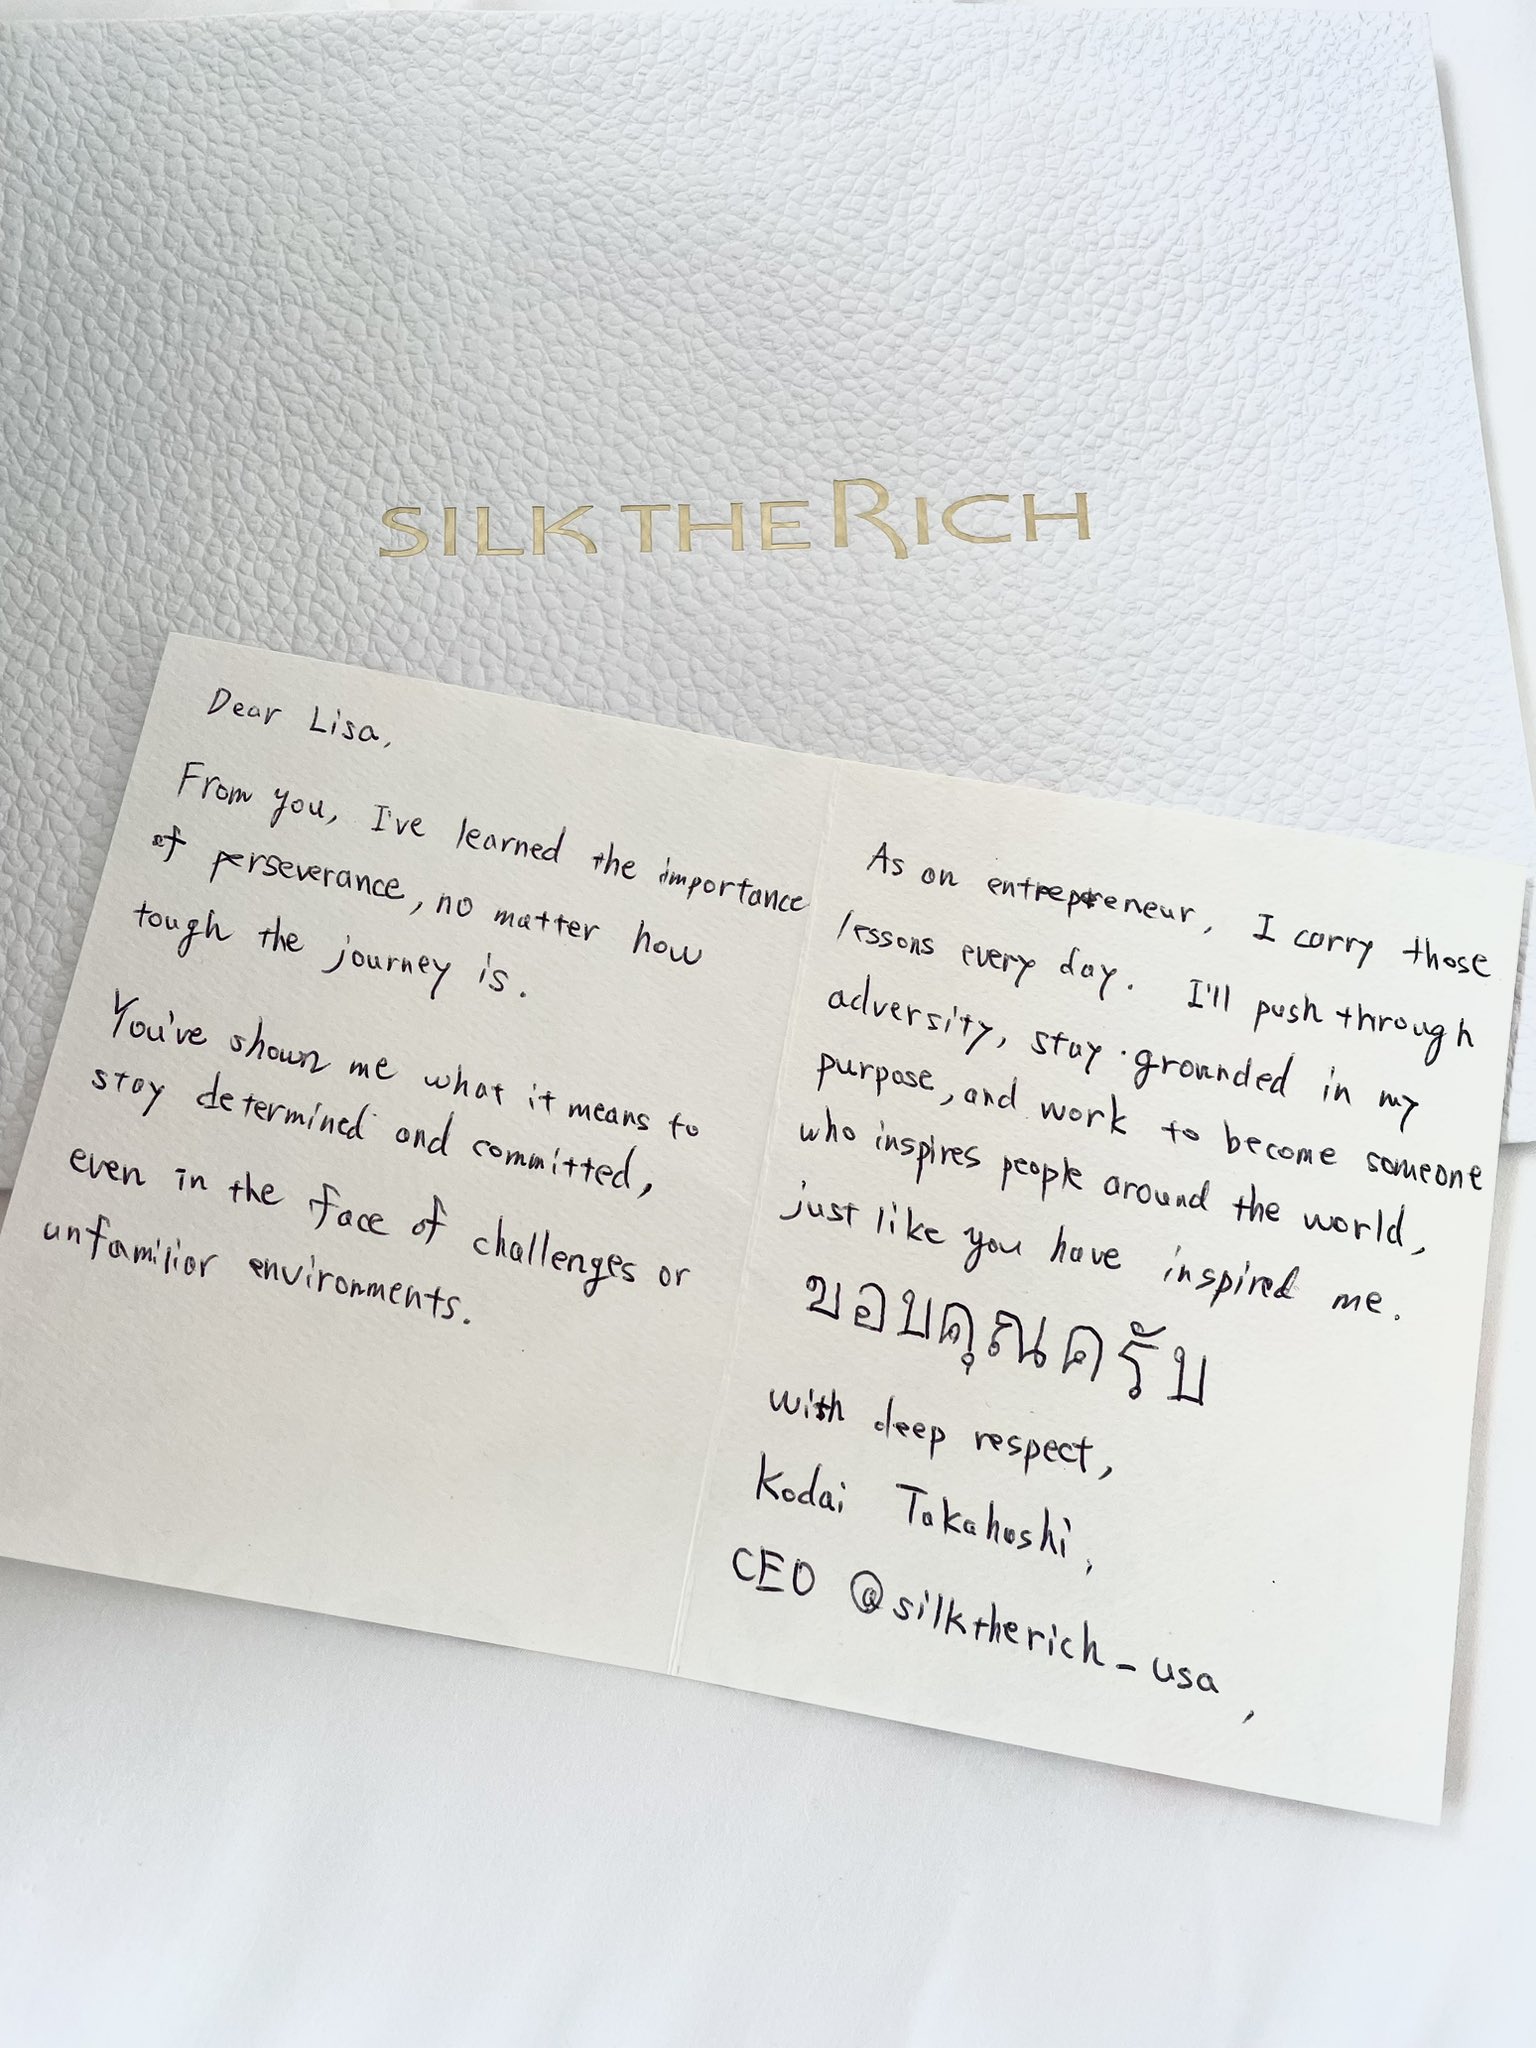 SILK THE RICH
Dear Lisa,
From you, I've learned the importance
of perseverance, no matter how
tough the journey is.
You've shown me what it means to
stay determined and committed,
even in the face of challenges or
unfamiliar environments.
As an entrepreneur, I carry those
lessons every day. I'll push through
adversity, stay grounded in my
purpose, and work to become someone
who inspires people around the world,
just like you have inspired me.
ขอบคุณครับ
with deep respect,
Kodai Takahashi,
CEO @silktherich_usa,